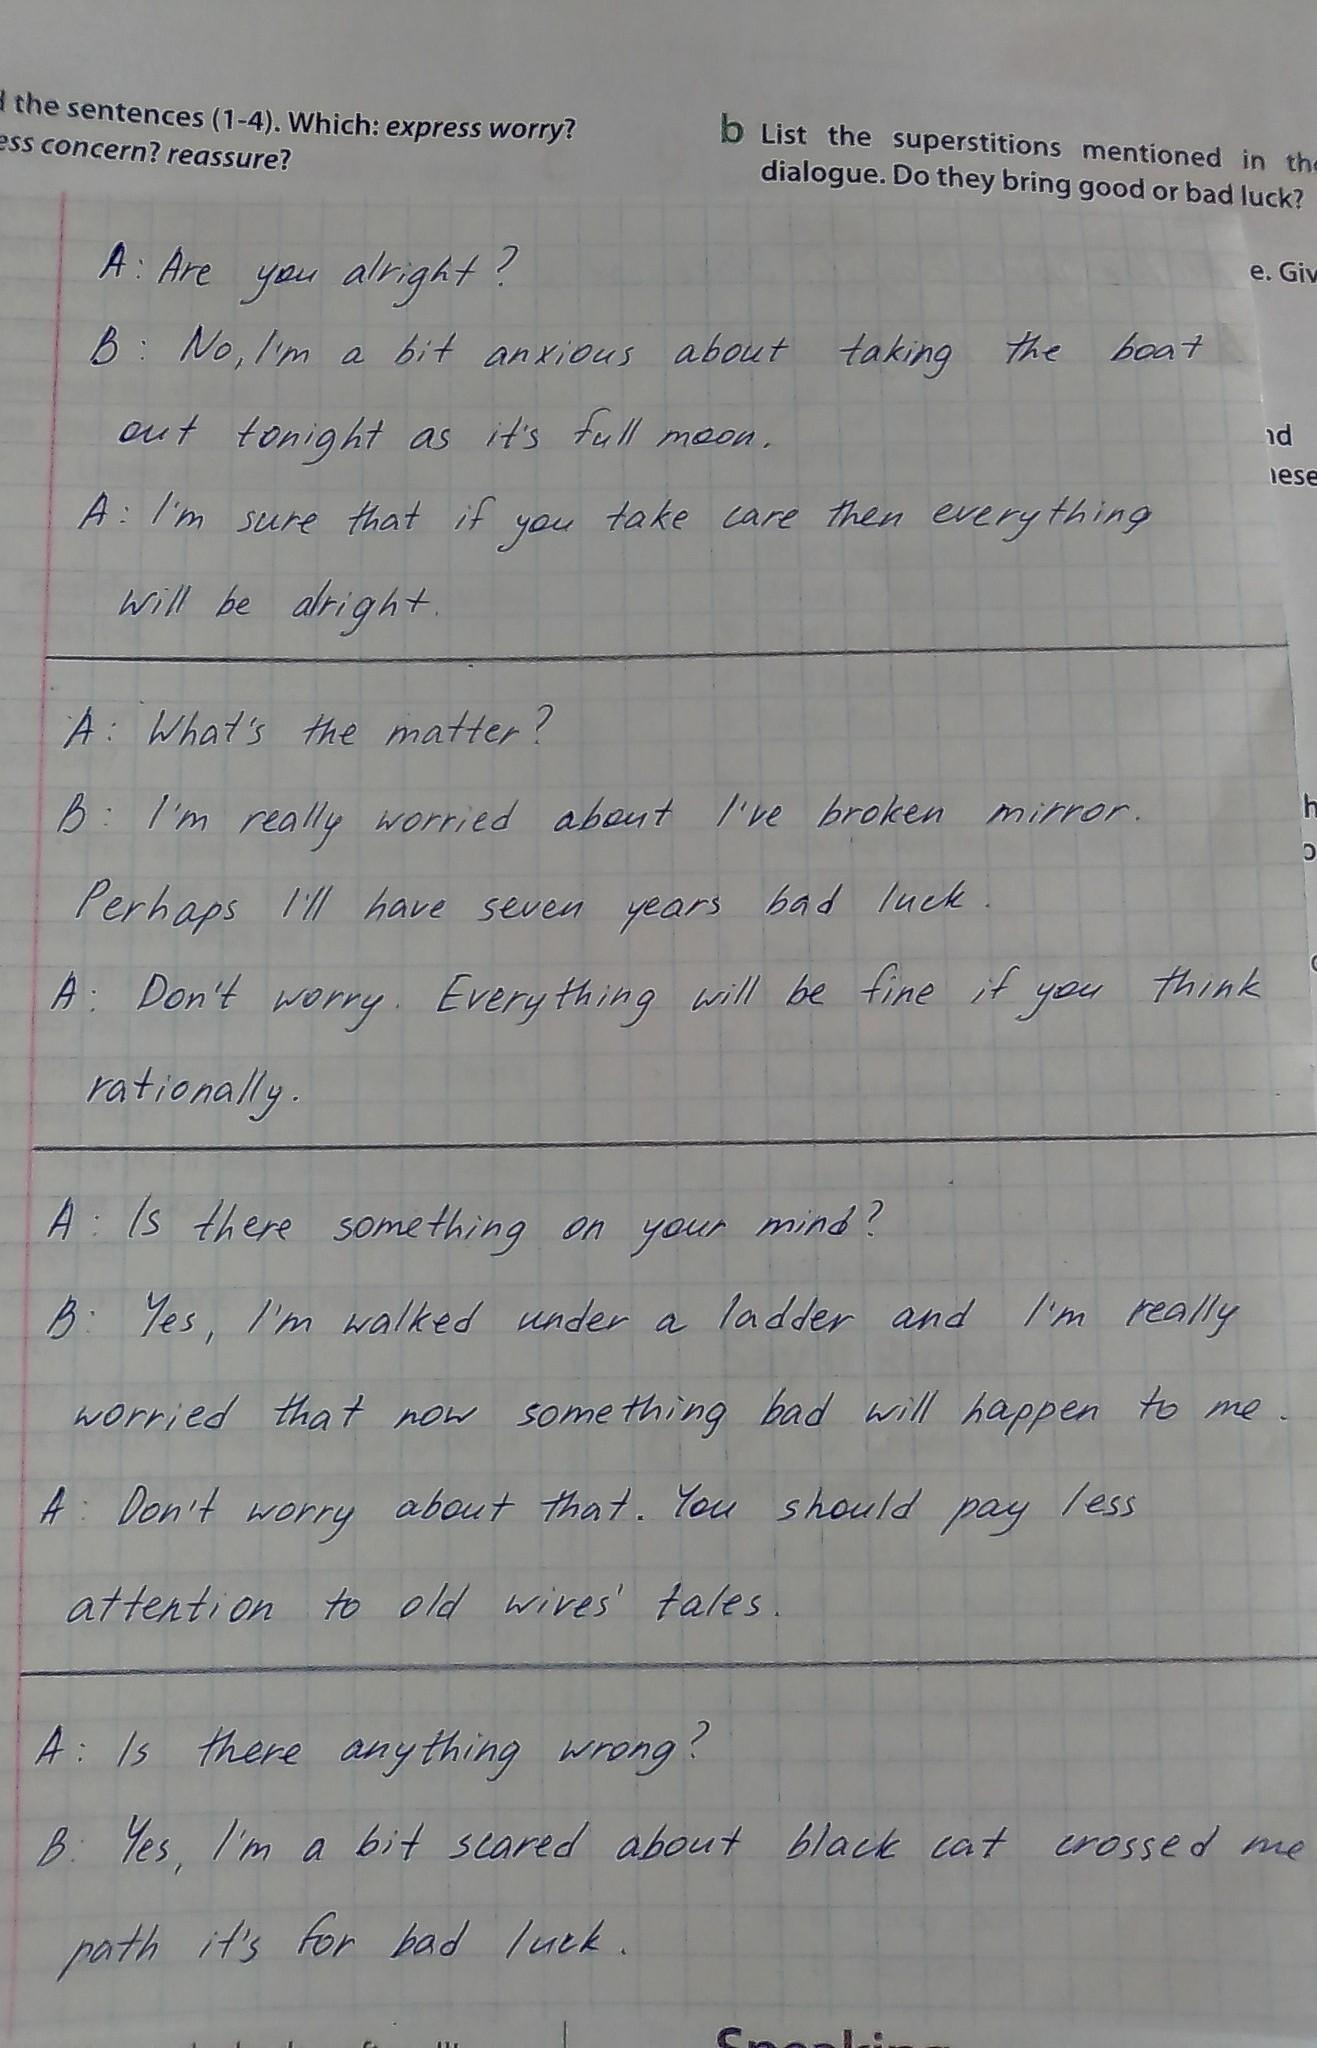 the sentences (1-4). Which: express worry?
concern? reassure?
b List the superstitions mentioned in
dialogue. Do they bring good or bad luck?
A: Are you alright?
e.
B: No, I'm a bit anxious about taking the boat
out tonight as it's full moon.
A: I'm sure that if you take care then everything
will be alright.
A: What's the matter?
B: I'm really worried about I've broken mirror.
Perhaps I'll have seven years bad luck.
A: Don't worry. Everything will be fine if you think
rationally.
A: Is there something on your mind?
B: Yes, I'm walked under a ladder and I'm really
worried that now something bad will happen to me.
A: Don't worry about that. You should pay less
attention to old wives' tales.
A: Is there anything wrong?
B: Yes, I'm a bit scared about black cat crossed me
path it's for bad luck.